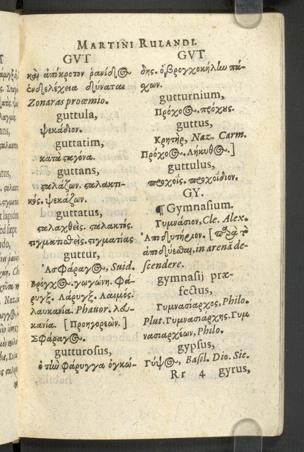 MARTINI RULANDI.
GUT
καὶ ἀπόκροτον ῥανίσιος
ἐνδελέχεια δύναται
Zonaras proœmio.
guttula,
ψεκάδιον.
guttatim,
κατὰ σταγόνα.
guttans,
σταλάζων. σταλακτι-
κός. ψεκάζων.
guttatus,
σταλαχθείς. σταλακτός.
στιγματισθείς. στιγματίας
guttur,
Ἀσφάραγος, Suid.
βρόγχος. γαργών. Φά-
ρυγξ. Λάρυγξ. Λαιμός.
λαυκανία. Phauor. λευ-
κανία. [Προηγορεών.]
Σφάραγος.
gutturosus,
ὁ τὴν Φάρυγγα ὀγκώ-
GUT
δης. ὁ βρογχοκήλην πά-
χων.
gutturnium,
Πρόχος. πρόχυς.
guttus,
Κρητήρ, Naz. Carm.
Πρόχος. Λήκυθος.]
guttulus,
προχοΐς. προχοίδιον.
GY.
¶ Gymnasium.
Γυμνάσιον, Cle. Alex.
in arena de-
scendere.
gymnasij præ-
fectus,
Γυμνασίαρχος, Philo.
Plut. Γυμνασιάρχης. Γυμ
νασιαρχῶν, Philo.
gypsus,
Γύψος, Basil. Dio. Sic.
Rr 4 gyrus,